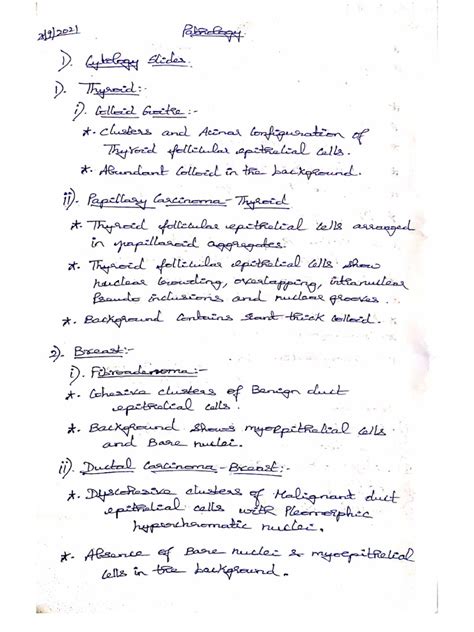 2/9/2021 Pathology
1). Cytology Slides
1). Thyroid:-
i). Colloid Goitre:-
*. Clusters and Acinar Configuration of
Thyroid follicular epithelial cells.
*. Abundant Colloid in the background.
ii). Papillary Carcinoma - Thyroid
*. Thyroid follicular epithelial cells arranged
in papillaroid aggregates.
*. Thyroid follicular epithelial cells show
nuclear Crowding, overlapping, intranuclear
Pseudo inclusions and nuclear grooves.
*. Background Contains scant thick colloid.
2). Breast:-
i). Fibroadenoma:-
*. Cohesive clusters of Benign duct
epithelial cells.
*. Background shows myoepithelial cells
and Bare nuclei.
ii). Ductal Carcinoma - Breast:-
*. Dyscohesive clusters of Malignant duct
epithelial cells with Pleomorphic
hyperchromatic nuclei.
*. Absence of Bare nuclei & myoepithelial
cells in the background.